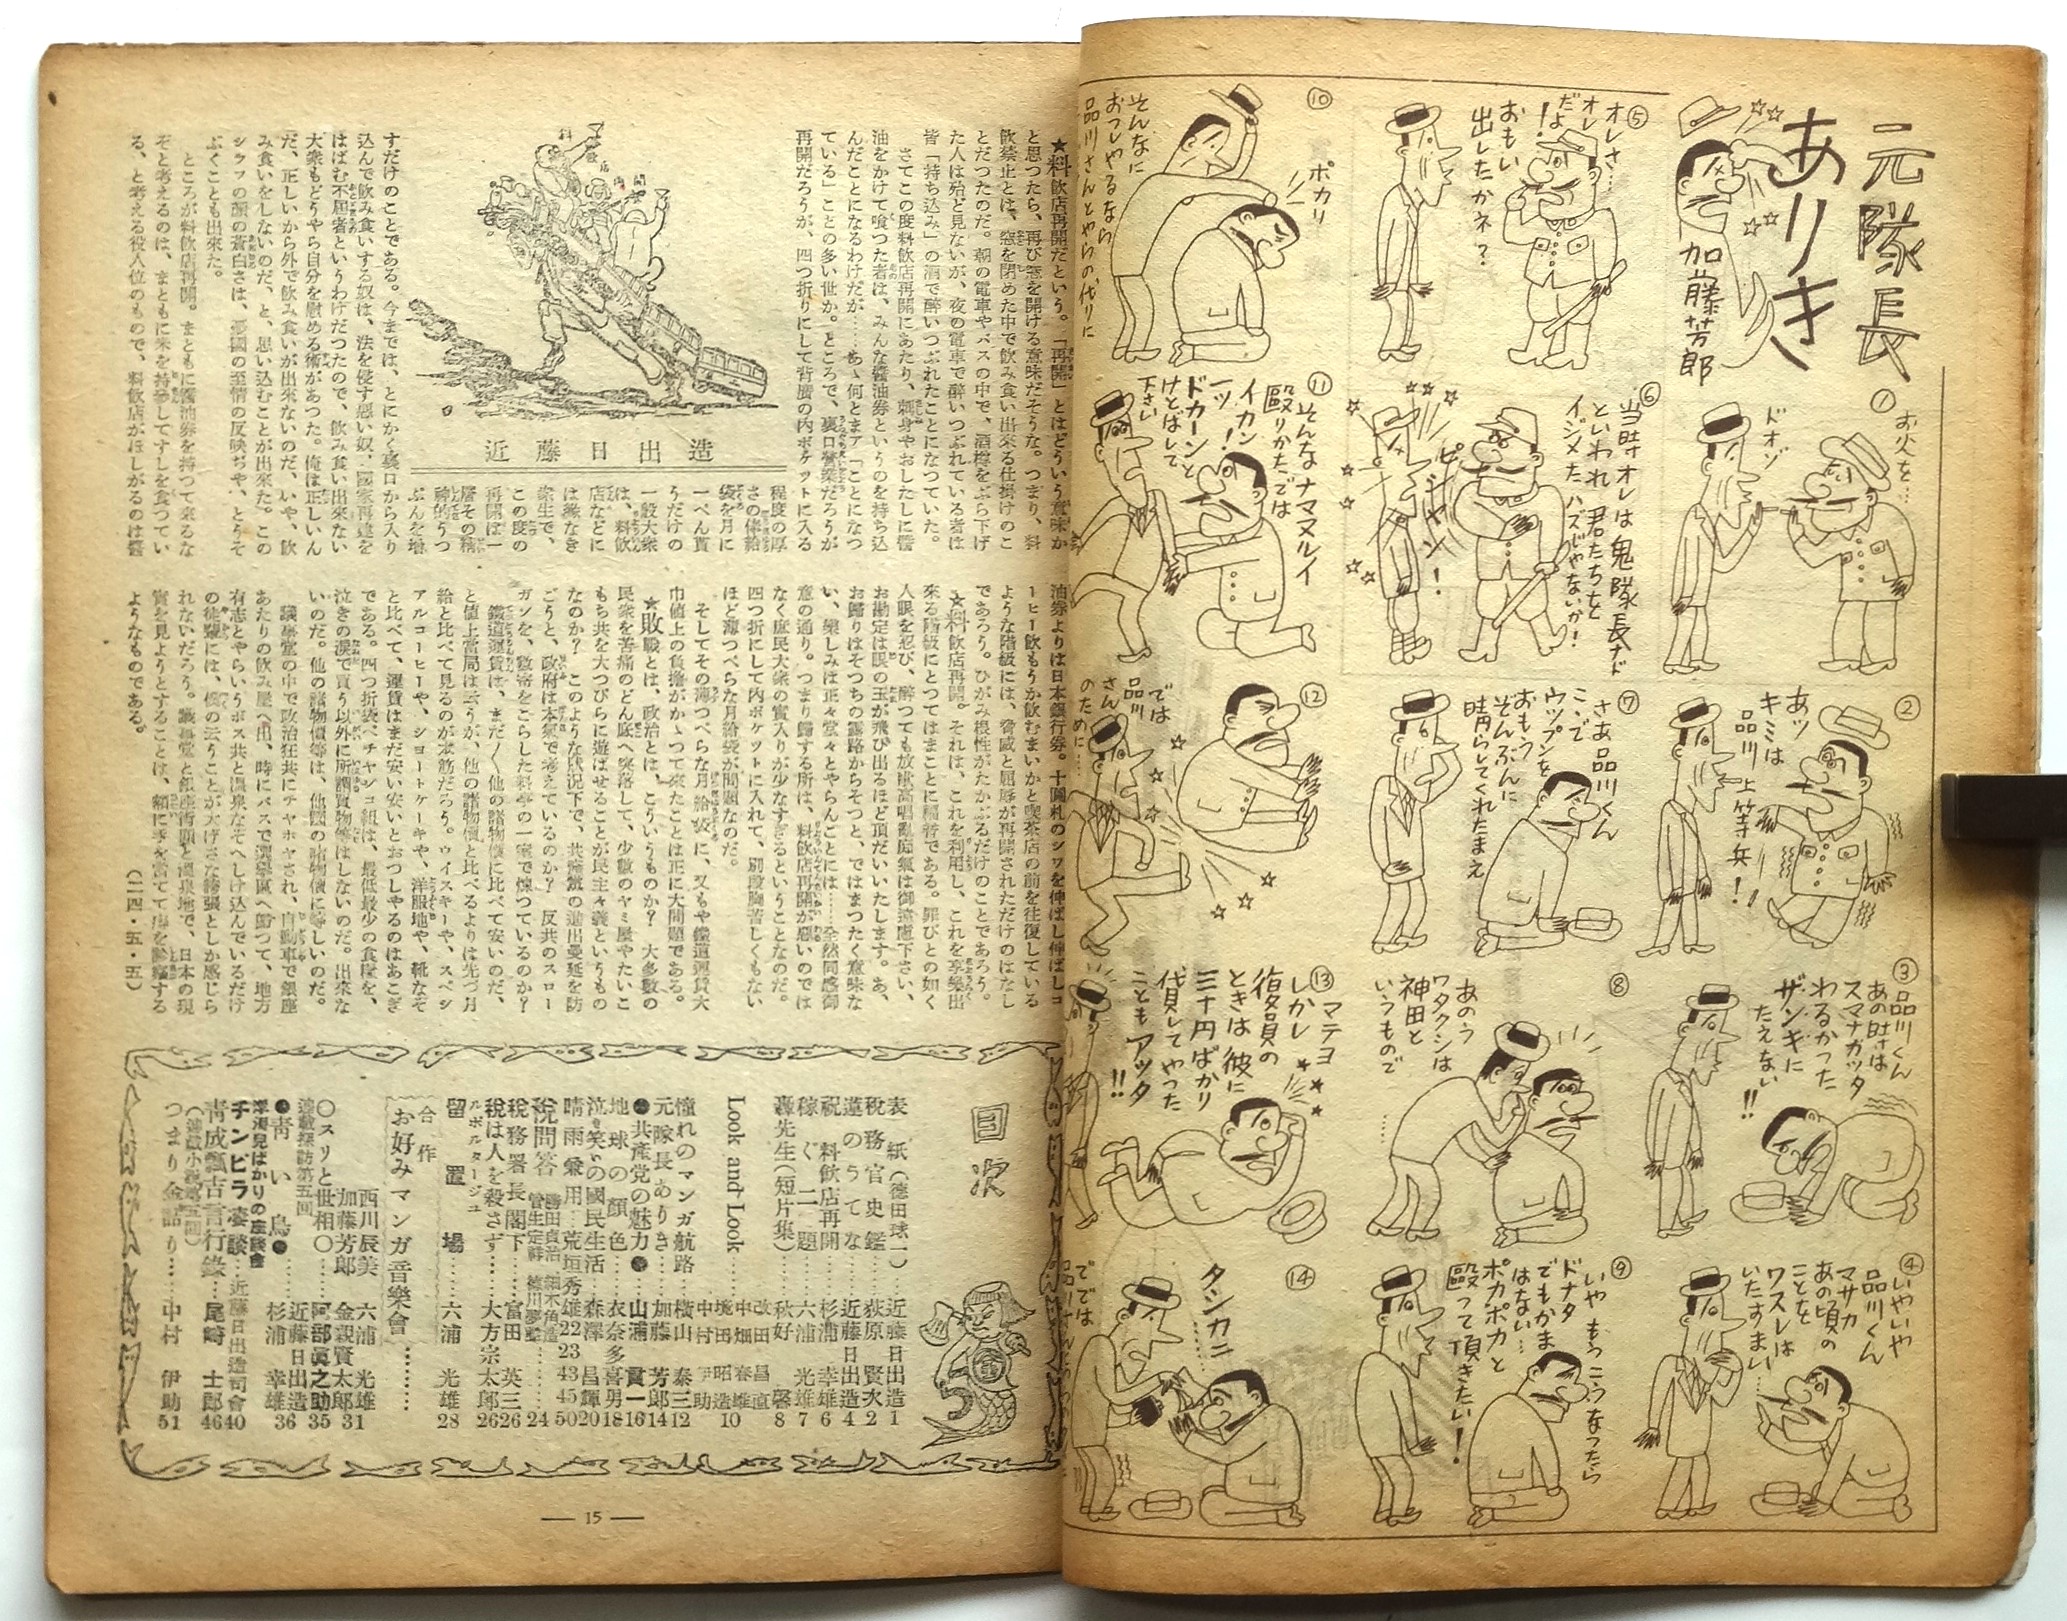 元隊長
ありき
加藤芳郎
①
お火を…
ドオゾ
②
あッ
キミは
品川上等兵!
③
品川くん
あの時は
スマナカッタ
わるかった
ザンキに
たえない!!
④
いやいや
品川くん
マサカ
あの頃の
ことを
ワスレは
いたすまい…
⑤
オレさ…
オレ
だよ!
おもい
出したかネ?
⑥
当時オレは鬼隊長ナド
といわれ君たちを
イジメたハズじゃないか!
ピシャン!
⑦
さあ品川くん
こゝで
ウップンを
おもう
ぞんぶんに
晴らしてくれたまえ
⑧
あのう
ワタクシは
神田と
いうもので
……
⑨
いやもうこうなったら
ドナタ
でもかま
はない…
ポカポカと
毆って頂きたい!
⑩
ポカリ
そんなに
おっしやるなら
品川さんとやらの代りに
⑪
そんなナマヌルイ
毆りかたでは
イカン!
一ツ
ドカーンと
けとばして
下さい
⑫
では
品川
さん
のために…
⑬
マテヨ
しかし
復員の
ときは彼に
三十円ばかり
貸してやった
こともアッタ!!
⑭
タシカニ……
★料飲店再開だという。「再開」とはどういう意味か
と思つたら、再び窓を開ける意味だそうな。つまり、料
飲禁止とは、窓を閉めた中で飲み食い出来る仕掛けのこ
とだつたのだ。朝の電車やバスの中で、酒樽をぶら下げ
た人は殆ど見ないが、夜の電車で酔いつぶれている者は
皆「持ち込み」の酒で酔いつぶれたことになつていた。
さてこの度料飲店再開にあたり、刺身やおしたしに醤
油をかけて喰つた者は、みんな醤油券というのを持ち込
んだことになるわけだが……あゝ何とまア「ことになつ
ている」ことの多い世か。ところで、裏口営業だろうが
再開だろうが、四つ折りにして背広の内ポケットに入る
近藤日出造
程度の厚
さの俸給
袋を月に
一ぺん貰
うだけの
一般大衆
は、料飲
店などに
は縁なき
衆生で、
この度の
再開は一
層その精
神的うつ
ぷんを増
すだけのことである。今までは、とにかく裏口から入り
込んで飲み食いする奴は、法を侵す悪い奴、国家再建を
はばむ不届者というわけだつたので、飲み食い出来ない
大衆もどうやら自分を慰める術があつた。俺は正しいん
だ、正しいから外で飲み食いが出来ないのだ、いや、飲
み食いをしないのだ、と、思い込むことが出来た。この
シラフの顔の蒼白さは、憂國の至情の反映ぢや、とうそ
ぶくことも出来た。
ところが料飲店再開。まともに醤油券を持つて来るな
そと考えるのは、まともに米を持参してすしを食つてい
る、と考える役人位のもので、料飲店がほしがるのは醤
油券よりは日本銀行券。十圓札のシワを伸ばし伸ばしコ
ーヒー飲もうか飲むまいかと喫茶店の前を往復している
ような階級には、脅威と屈辱が再開されただけのはなし
であろう。ひがみ根性がたかぶるだけのことであろう。
★料飲店再開。それは、これを利用し、これを享楽出
来る階級にとつてはまことに福音である。罪びとの如く
人眼を忍び、酔つても放歌高唱乱痴気は御遠慮下さい、
お勘定は眼の玉が飛び出るほど頂だいいたします。あ、
お帰りはそつちの露路からそつと、ではまつたく意味な
い、楽しみは正々堂々とやらんことには……全然同感御
意の通り。つまり歸する所は、料飲店再開が悪いのでは
なく庶民大衆の實入りが少なすぎるということなのだ。
四つ折にして内ポケットに入れて、別段胸苦しくもない
ほど薄つぺらな月給袋が問題なのだ。
そしてその薄つぺらな月給袋に、又もや鐵道運賃大
巾値上の負擔がかゝつて来たことは正に大問題である。
★敗戰とは、政治とは、こういうものか? 大多數の
民衆を苦痛のどん底へ突落して、少數のヤミ屋やたいこ
もち共を大つぴらに遊ばせることが民主々義というもの
なのか? このような状況下で、共産黨の進出蔓延を防
ごうと、政府は本氣で考えているのか? 反共のスロー
ガンを、數寄をこらした料亭の一室で煉つているのか?
鐵道運賃は、まだ〳〵他の諸物價に比べて安いのだ、
と値上當局は云うが、他の諸物價と比べるよりは先づ月
給と比べて見るのが本筋だろう。ウイスキーや、スペシ
アルコーヒーや、ショートケーキや、洋服地や、靴なぞ
と比べて、運賃はまだ安い安いとおつしやるのはあこぎ
である。四つ折袋ペチャンコ組は、最低最少の食糧を、
泣きの涙で買う以外に所謂買物等はしないのだ。出来な
いのだ。他の諸物價等は、他國の諸物價に等しいのだ。
議事堂の中で政治狂共にチヤホヤされ、自動車で銀座
あたりの飲み屋へ出、時にパスで選擧區へ歸つて、地方
有志とやらいうボス共と温泉なぞへしけ込んでいるだけ
の徒輩には、僕の云うことが大げさな誇張としか感じら
れないだろう。議事堂と銀座街頭と温泉地で、日本の現
實を見ようとすることは、額に手を當てて痔を診察する
ようなものである。
(二四・五・五)
目次
表紙(徳田球一)……近藤日出造 1
税務官史鑑……荻原賢次 2
蓮のうてな……近藤日出造 4
祝 料飲店再開……杉浦幸雄 6
稼ぐ二題……六浦光雄 7
轟先生(短片集)……秋好馨 8
Look and Look
改田昌直
中畑春雄
境田昭造
中村伊助
10
憧れのマンガ航路……横山泰三 12
元隊長ありき……加藤芳郎 14
●共産党の魅力●……山浦貫一 16
地球の顔色……衣奈多喜男 18
泣き笑いの國民生活……森澤昌輝 20
晴雨乗用…荒垣秀雄 22 23 43 45 50
税問答
勝田貞治
細木角造
菅生定祥
徳川夢聲
24
税務署長閣下……富田英三 26
税は人を殺さず……大方宗太郎 26
ルポルタージュ
留置場……六浦光雄 28
合作
お好みマンガ音樂會……
西川辰美
六浦光雄
加藤芳郎
金親賢太郎
31
○スリと世相○……阿部眞之助 35
連載探訪第五回
●青い鳥●……
近藤日出造
杉浦幸雄
36
深海見ばかりの座談會
チンビラ蔘談…近藤日出造司會 40
青成瓢吉言行錄……尾崎士郎 46
(連載小説第五回)
つまり金詰り……中村伊助 51
— 15 —